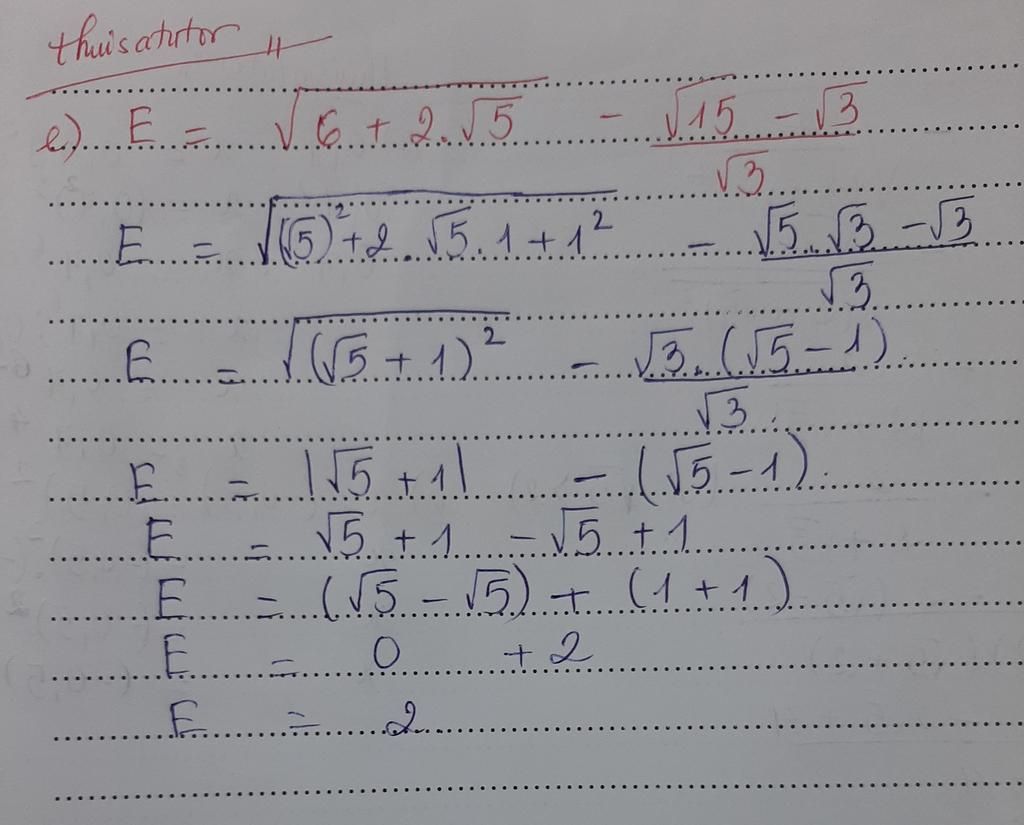 thuisatutor
e) E = √(6 + 2.√5) - (√15 - √3)/√3
E = √((√5)² + 2.√5.1 + 1²) - (√5.√3 - √3)/√3
E = √((√5 + 1)²) - √3.(√5 - 1)/√3
E = |√5 + 1| - (√5 - 1)
E = √5 + 1 - √5 + 1
E = (√5 - √5) + (1 + 1)
E = 0 + 2
E = 2